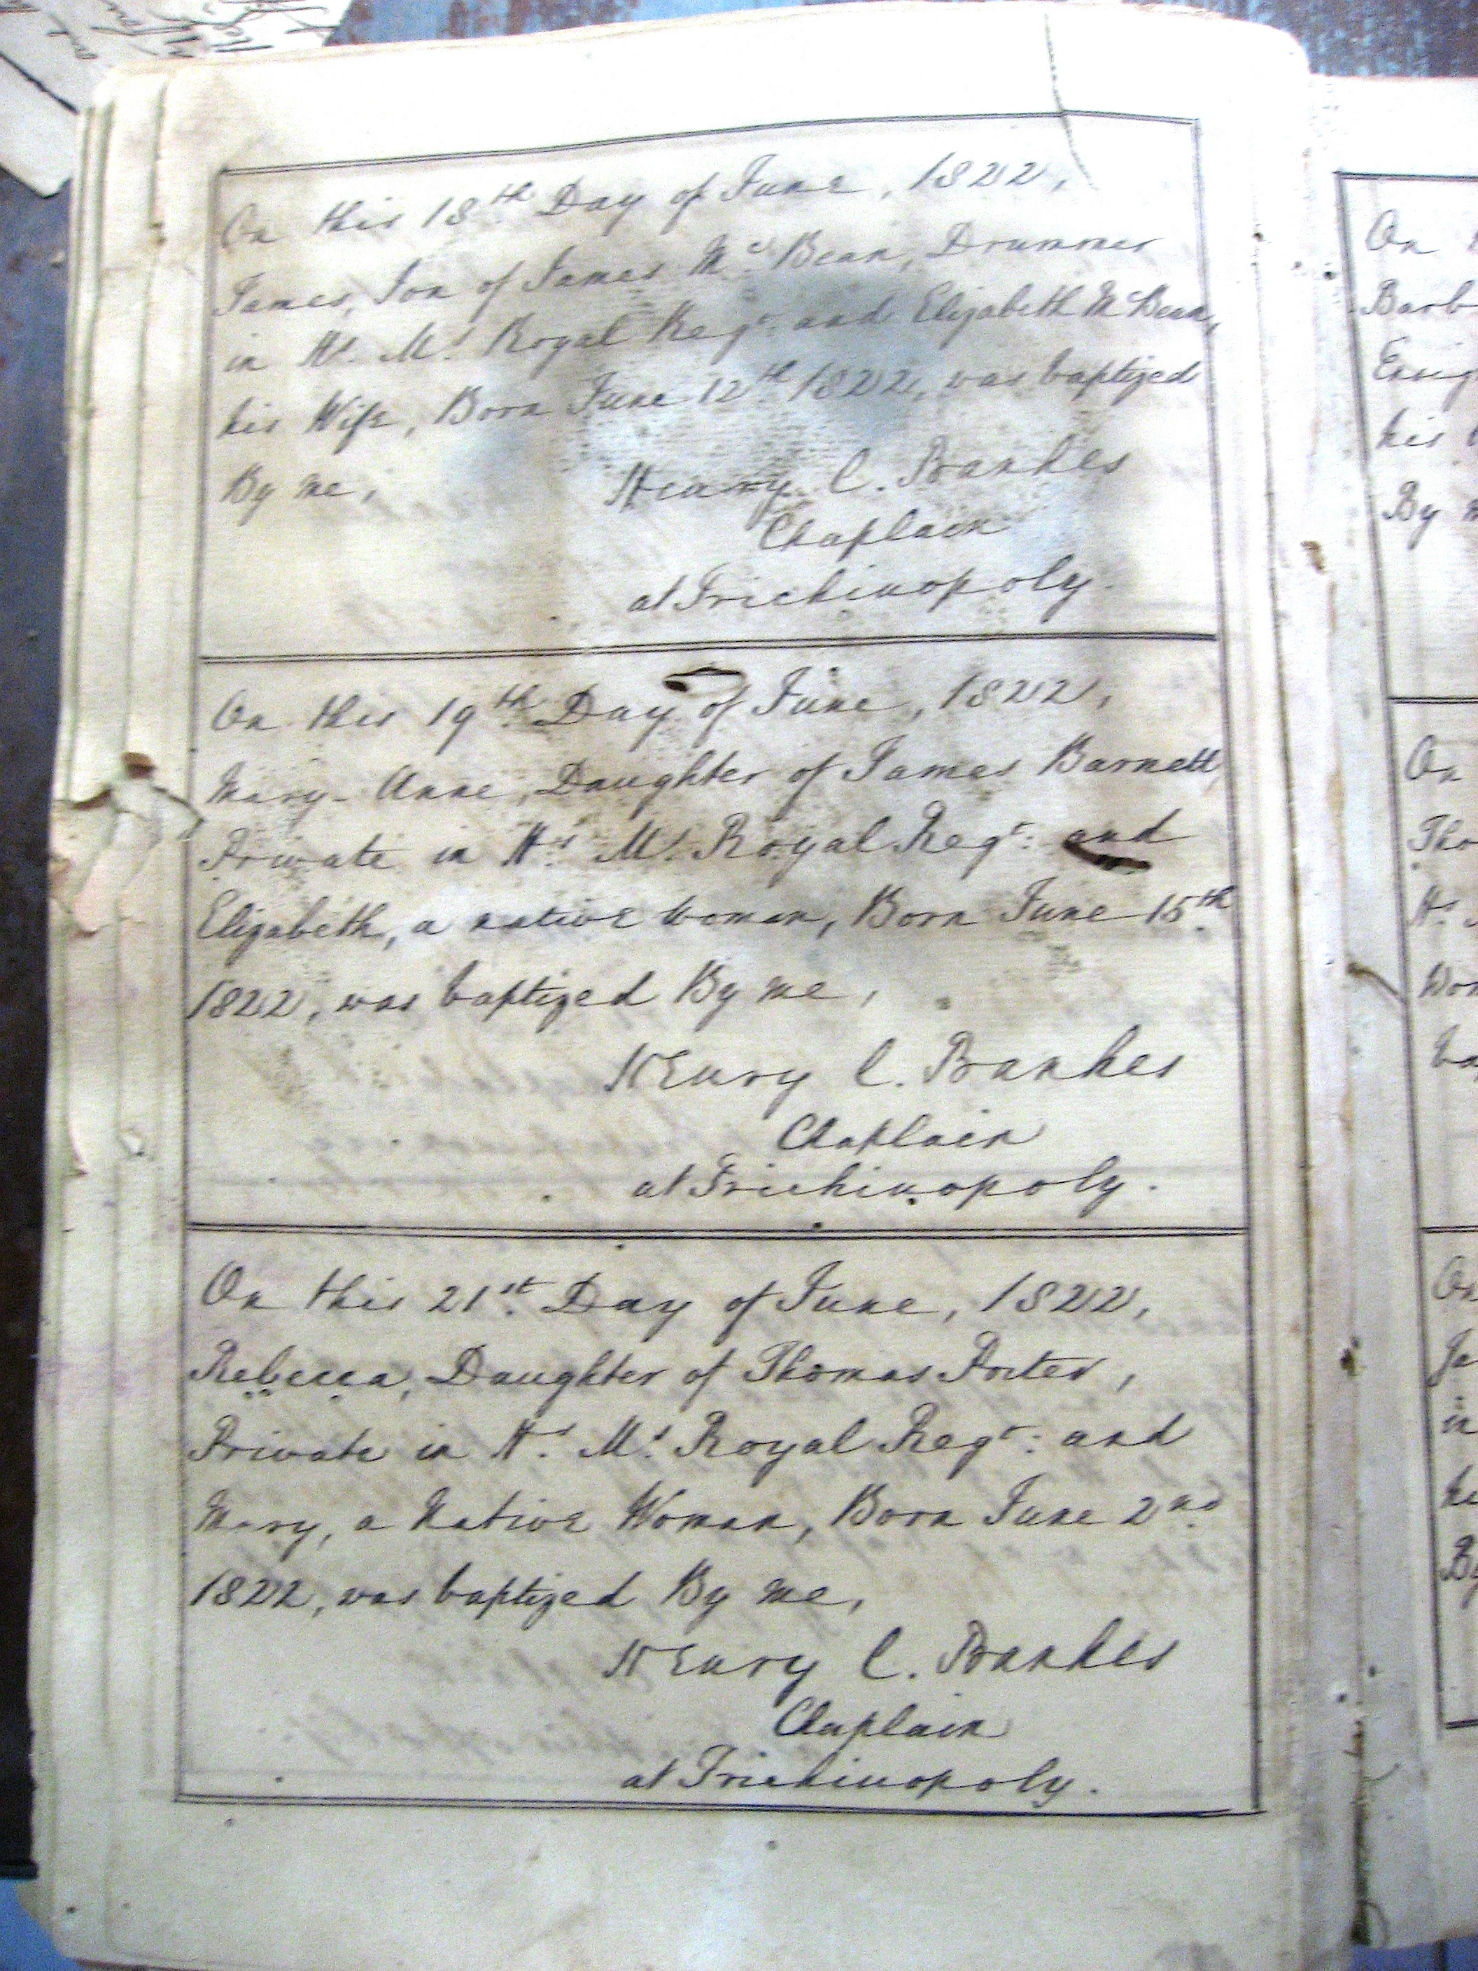 On this 18th Day of June, 1822,
James, Son of James Mc. Bean, Drummer
in Hs. Ms. Royal Regt: and Elizabeth Mc Bean,
his Wife, Born June 12th 1822, was baptized
By me,
Henry C. Bankes
Chaplain
at Trichinopoly.
On this 19th Day of June, 1822,
Mary-Anne, Daughter of James Barnett,
Private in Hs. Ms. Royal Regt: and
Elizabeth, a native woman, Born June 15th
1822, was baptized By me,
Henry C. Bankes
Chaplain
at Trichinopoly.
On this 21st Day of June, 1822,
Rebecca, Daughter of Thomas Porter,
Private in Hs. Ms. Royal Regt: and
Mary, a Native Woman, Born June 2nd
1822, was baptized By me,
Henry C. Bankes
Chaplain
at Trichinopoly.
On
his
By
On